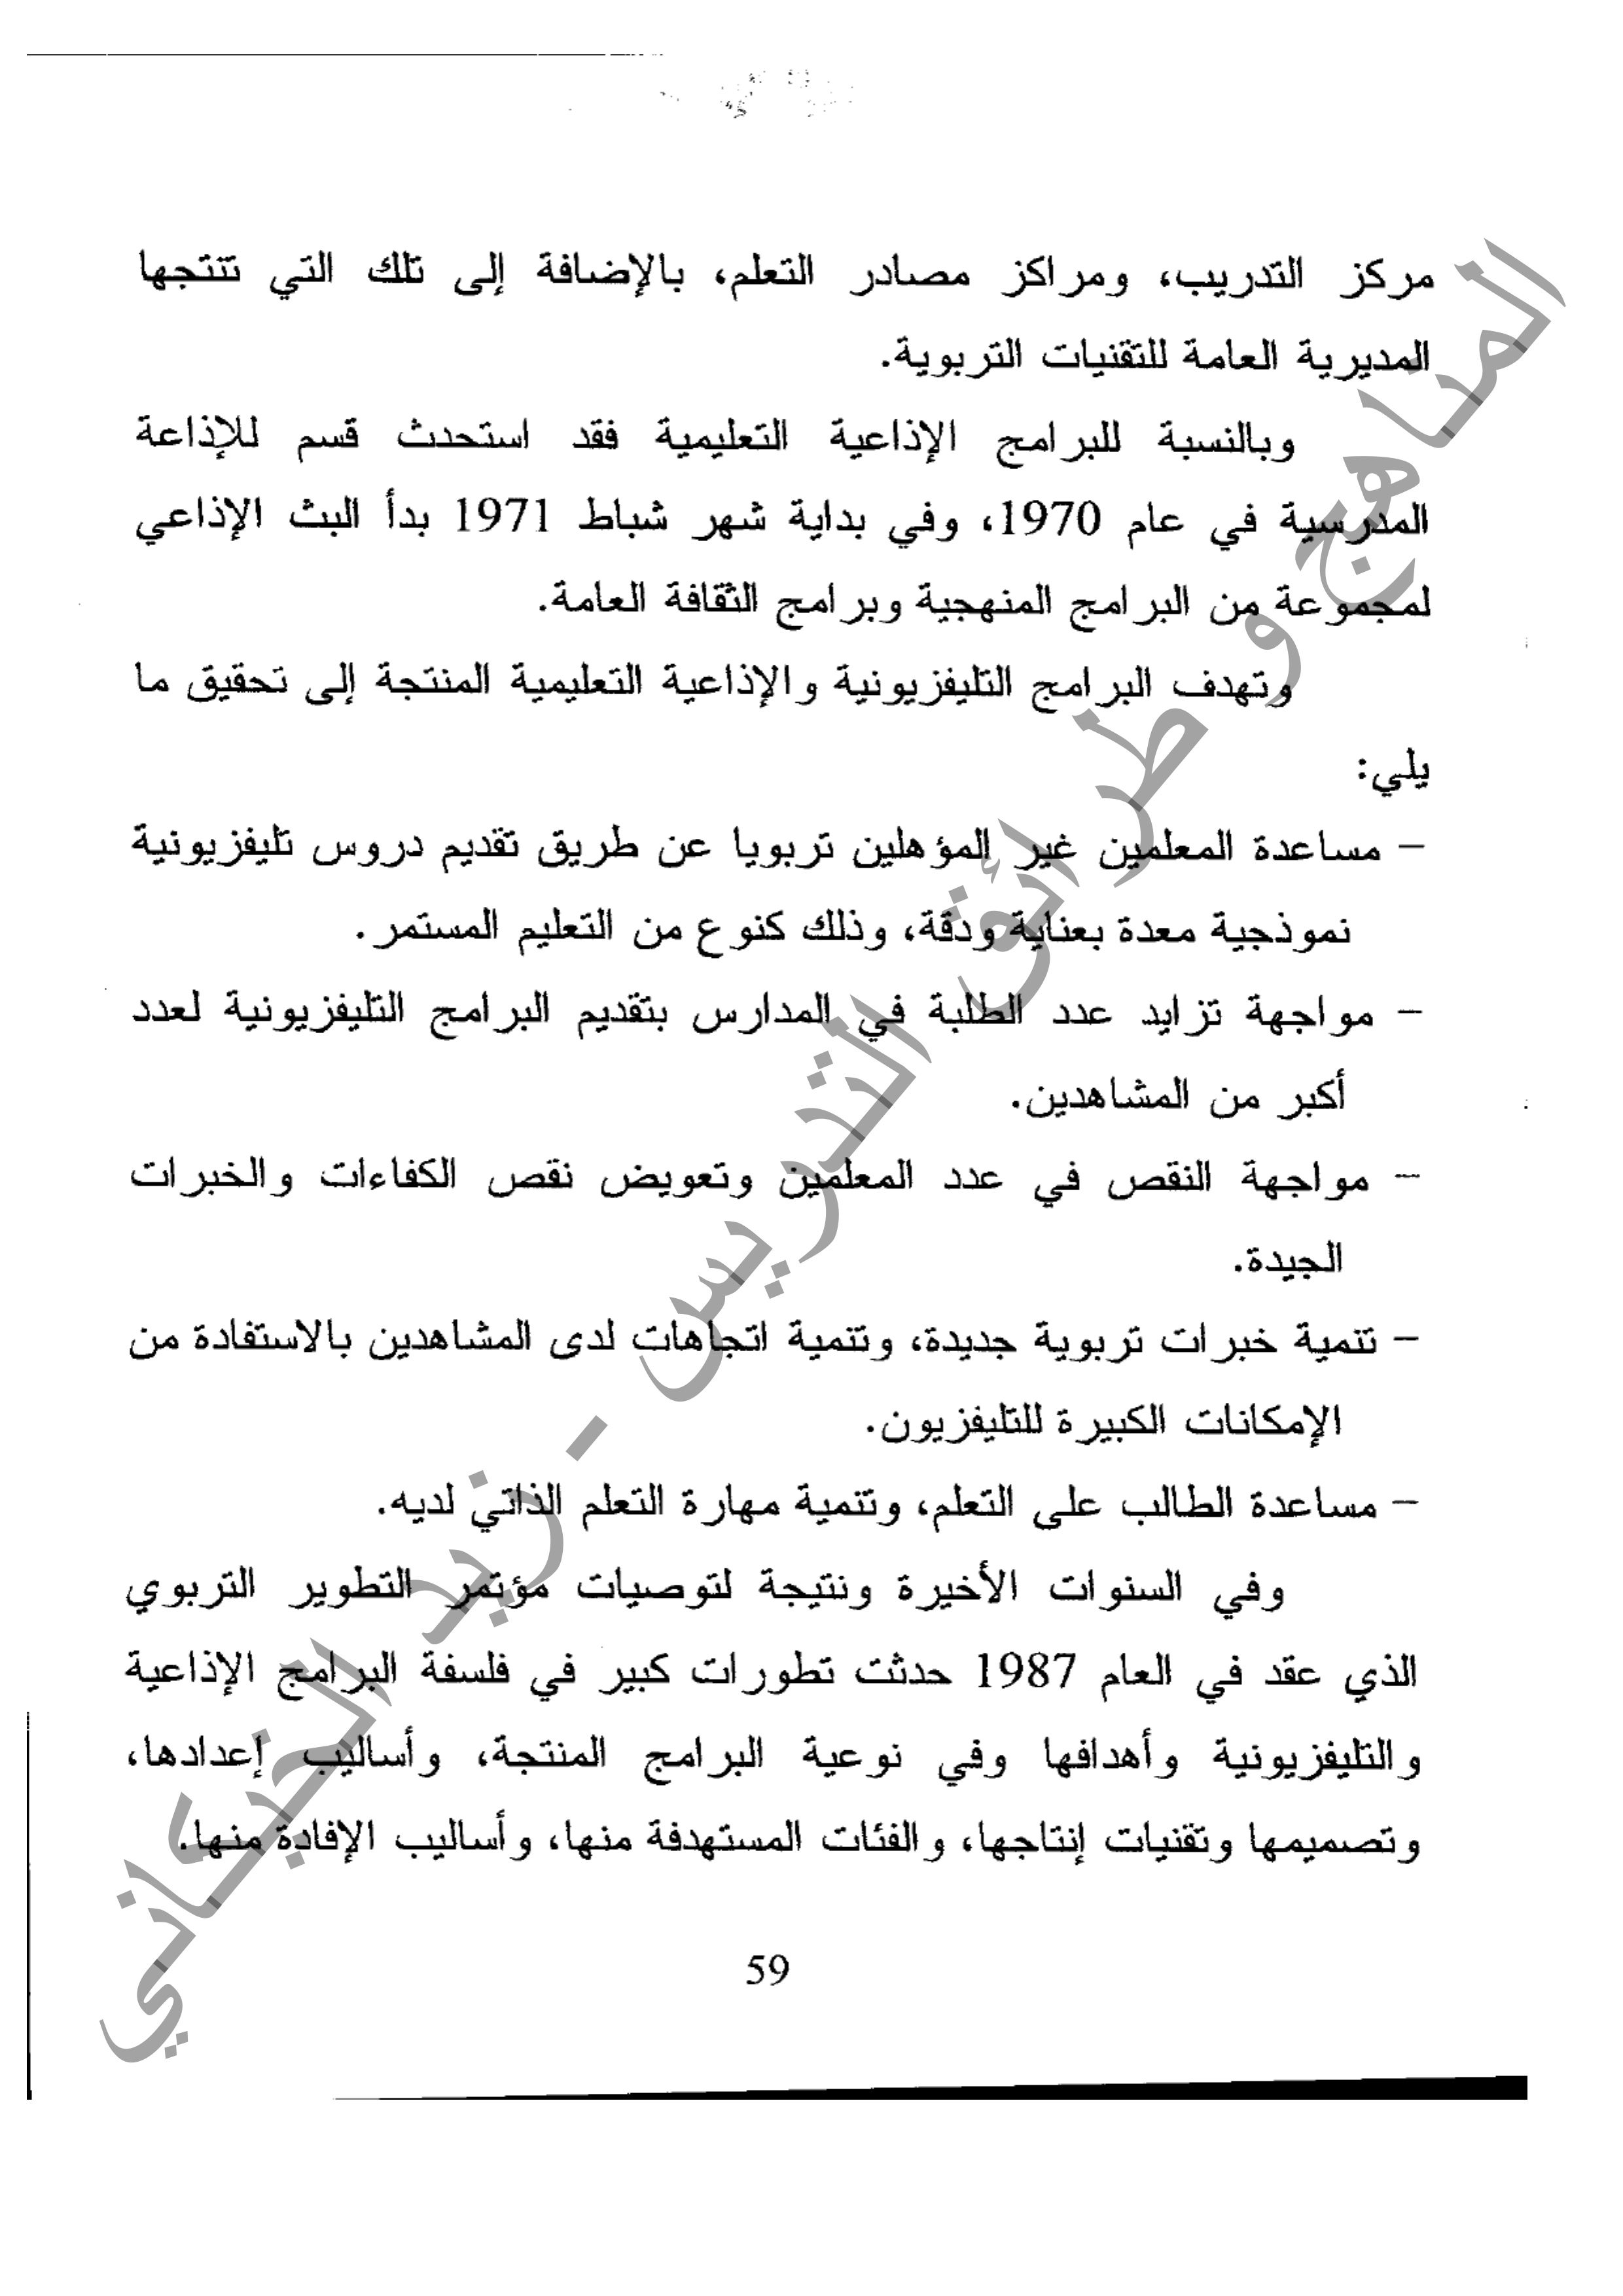 مركز التدريب، ومراكز مصادر التعلم، بالإضافة إلى تلك التي تنتجها
المديرية العامة للتقنيات التربوية.
وبالنسبة للبرامج الإذاعية التعليمية فقد استحدث قسم للإذاعة
المدرسية في عام 1970، وفي بداية شهر شباط 1971 بدأ البث الإذاعي
لمجموعة من البرامج المنهجية وبرامج الثقافة العامة.
وتهدف البرامج التليفزيونية والإذاعية التعليمية المنتجة إلى تحقيق ما
يلي:
– مساعدة المعلمين غير المؤهلين تربويا عن طريق تقديم دروس تليفزيونية
نموذجية معدة بعناية ودقة، وذلك كنوع من التعليم المستمر.
– مواجهة تزايد عدد الطلبة في المدارس بتقديم البرامج التليفزيونية لعدد
أكبر من المشاهدين.
– مواجهة النقص في عدد المعلمين وتعويض نقص الكفاءات والخبرات
الجيدة.
– تنمية خبرات تربوية جديدة، وتنمية اتجاهات لدى المشاهدين بالاستفادة من
الإمكانات الكبيرة للتليفزيون.
– مساعدة الطالب على التعلم، وتنمية مهارة التعلم الذاتي لديه.
وفي السنوات الأخيرة ونتيجة لتوصيات مؤتمر التطوير التربوي
الذي عقد في العام 1987 حدثت تطورات كبير في فلسفة البرامج الإذاعية
والتليفزيونية وأهدافها وفي نوعية البرامج المنتجة، وأساليب إعدادها،
وتصميمها وتقنيات إنتاجها، والفئات المستهدفة منها، وأساليب الإفادة منها.
59
المناهج و طرائق التدريس - زيد الخيكاني